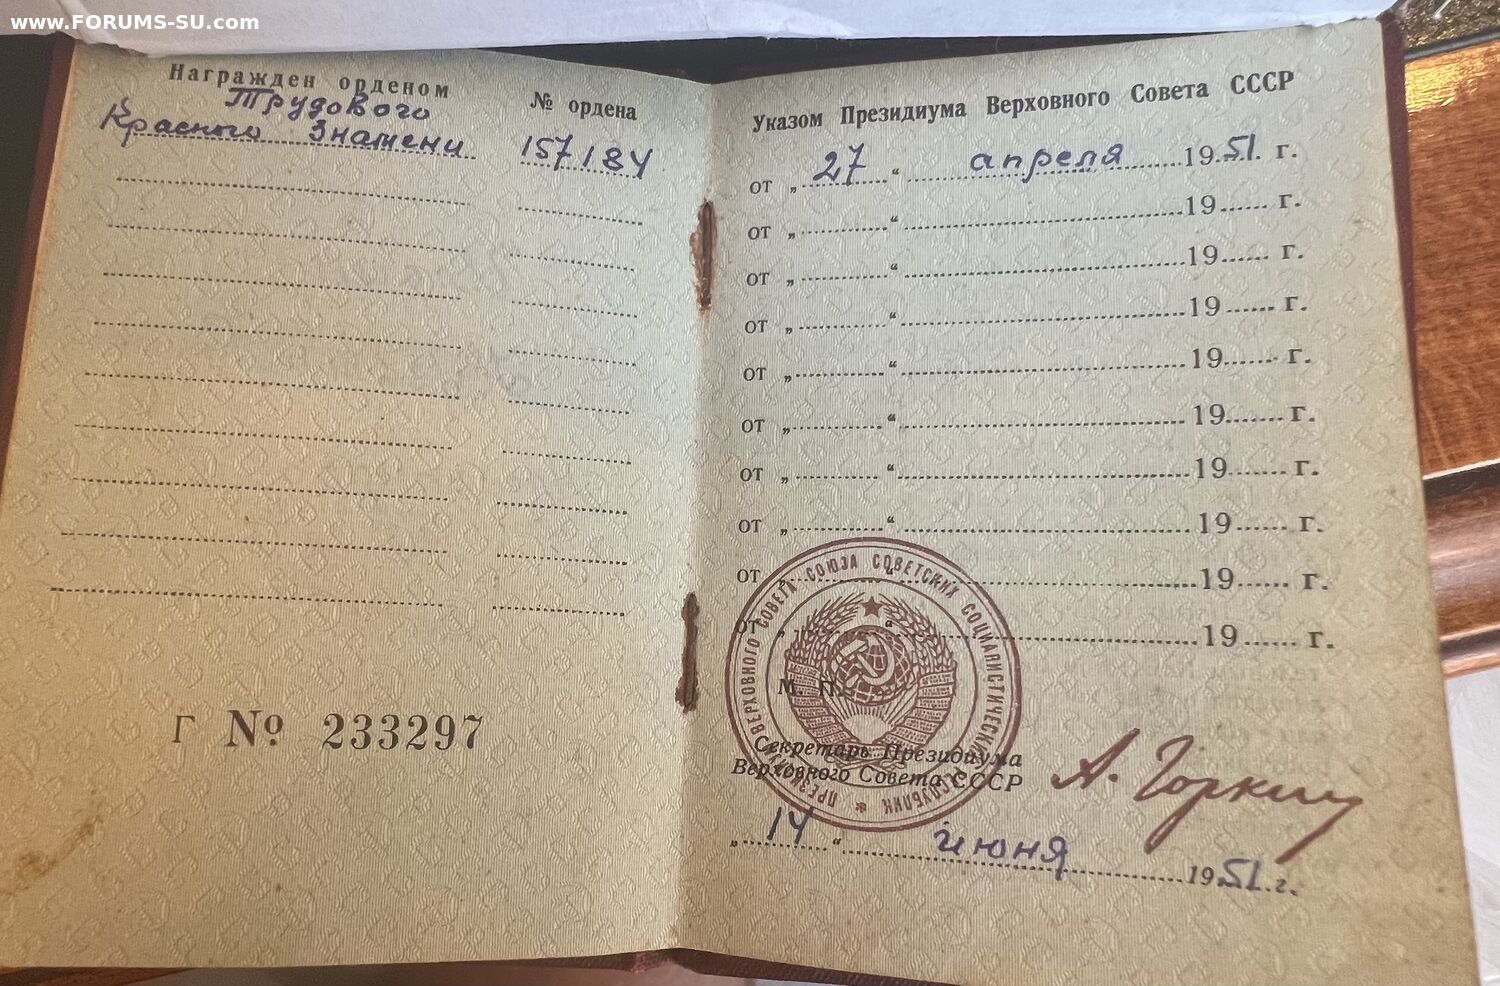 www.FORUMS-SU.com
Награжден орденом
№ ордена
Трудового
Красного Знамени
157184
Указом Президиума Верховного Совета СССР
от „27“ апреля 1951 г.
от „ “ 19 г.
от „ “ 19 г.
от „ “ 19 г.
от „ “ 19 г.
от „ “ 19 г.
от „ “ 19 г.
от „ “ 19 г.
от „ “ 19 г.
от „ “ 19 г.
Г № 233297
ПРЕЗИДИУМ ВЕРХОВНОГО СОВЕТА СОЮЗА СОВЕТСКИХ СОЦИАЛИСТИЧЕСКИХ РЕСПУБЛИК
М. П.
Секретарь Президиума
Верховного Совета СССР
А. Горкин
„14“ июня 1951 г.